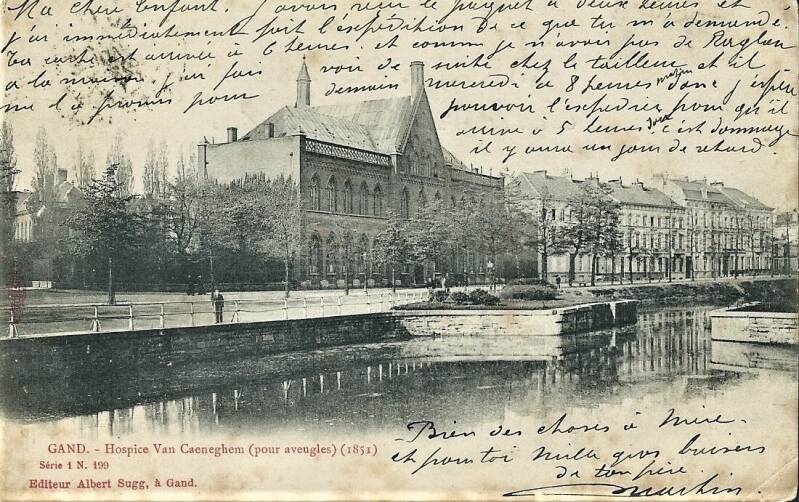 Ma chère Enfant. J'avais reçu le paquet à deux heures et
j'ai immédiatement fait l'expédition de ce que tu m'a demandé
Ta carte est arrivée à 6 heures et comme je n'avais pas de Raglan
à la maison j'en fais voir de suite chez le tailleur et il
me l'a promis pour demain mercredi à 8 heures matin donc j'espère
pouvoir l'expédier pour qu'il
arrive à 5 heures c'est dommage
il y aura un jour de retard.
Bien des choses à Mère
et pour toi mille gros baisers
de ton père
GAND. - Hospice Van Caeneghem (pour aveugles) (1851)
Série 1 N. 199
Editeur Albert Sugg, à Gand.